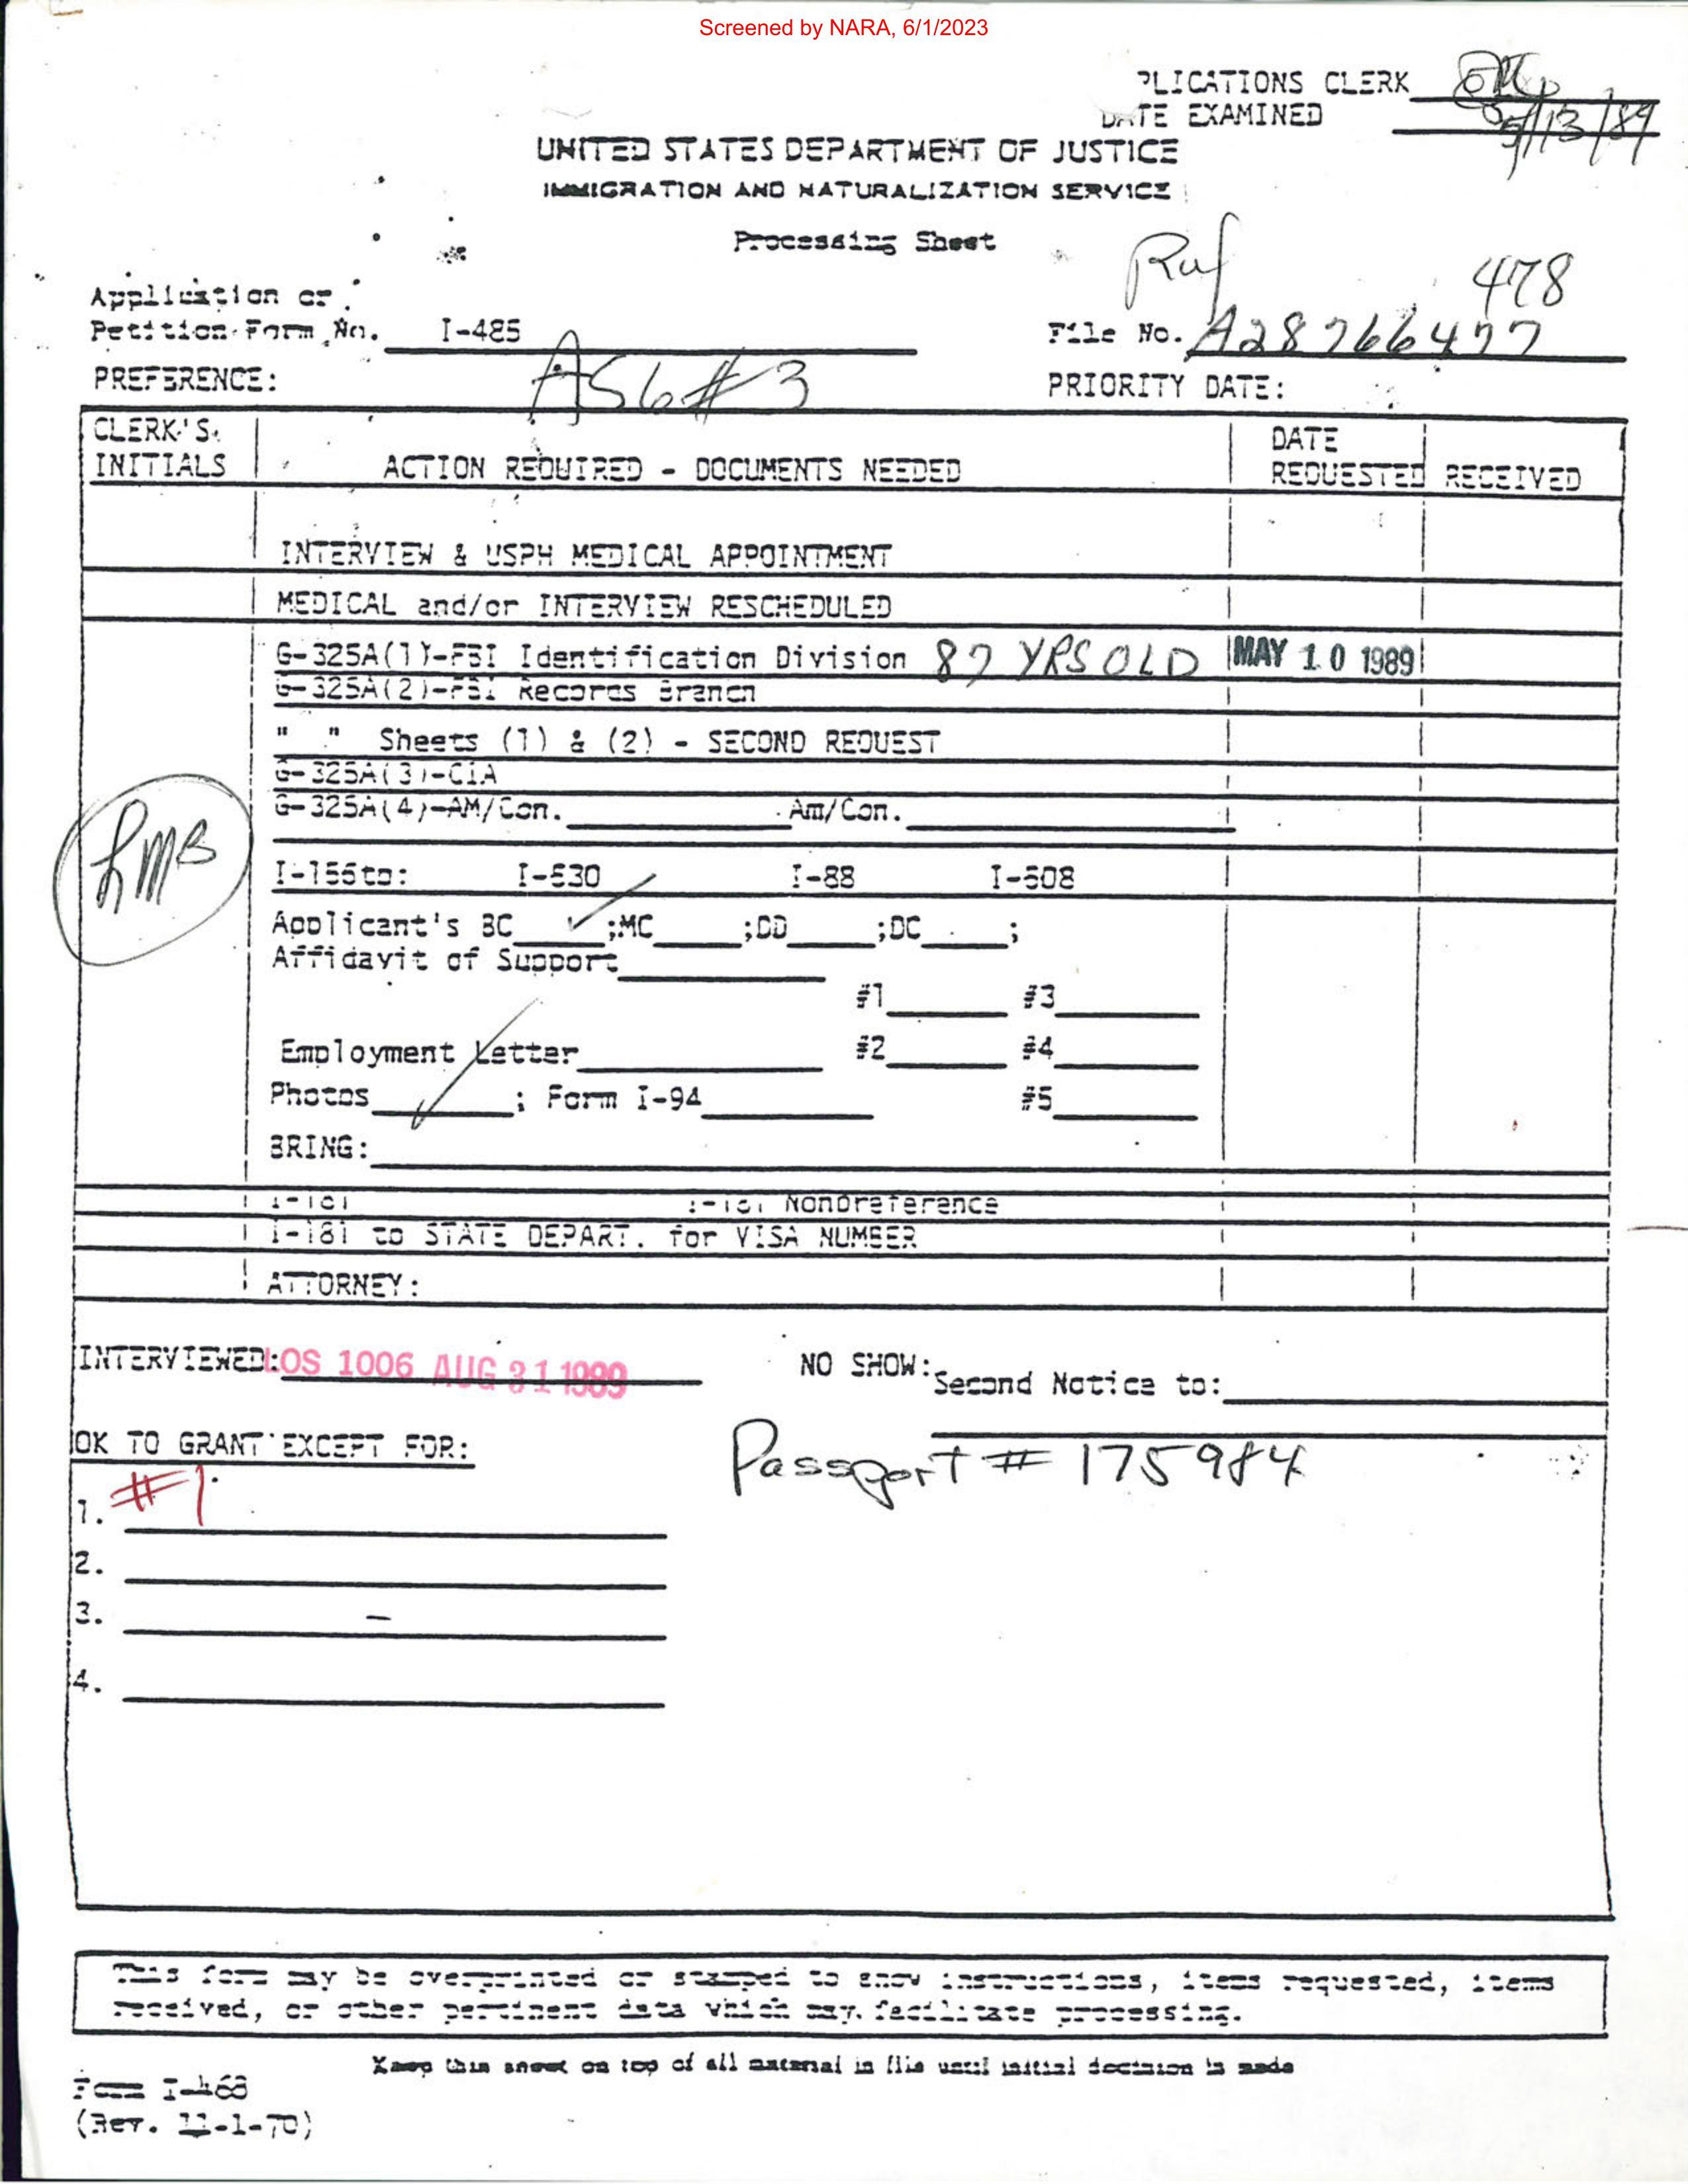 Screened by NARA, 6/1/2023
PLICATIONS CLERK
DATE EXAMINED 5/13/89
UNITED STATES DEPARTMENT OF JUSTICE
IMMIGRATION AND NATURALIZATION SERVICE
Processing Sheet
Ref 478
Application or
Petition Form No. I-485 File No. A28766477
PREFERENCE: AS6#3 PRIORITY DATE:
CLERK'S INITIALS ACTION REQUIRED - DOCUMENTS NEEDED DATE REQUESTED RECEIVED
INTERVIEW & USPH MEDICAL APPOINTMENT
MEDICAL and/or INTERVIEW RESCHEDULED
G-325A(1)-FBI Identification Division 87 YRS OLD MAY 10 1989
G-325A(2)-FBI Records Branch
" " Sheets (1) & (2) - SECOND REQUEST
G-325A(3)-CIA
G-325A(4)-AM/Con. Am/Con.
LMB
I-156to: I-530 I-88 I-508
Applicant's BC ✓ ;MC ;DD ;DC ;
Affidavit of Support
#1 #3
Employment Letter #2 #4
Photos ✓ ; Form I-94 #5
BRING:
I-181 I-181 Nonpreference
I-181 to STATE DEPART. for VISA NUMBER
ATTORNEY:
INTERVIEWED: LOS 1006 AUG 31 1989 NO SHOW: Second Notice to:
OK TO GRANT EXCEPT FOR: Passport # 175984
1. #1
2.
3. –
4.
This form may be overprinted or stamped to show instructions, items requested, items
received, or other pertinent data which may facilitate processing.
Keep this sheet on top of all material in file until initial decision is made
Form I-468
(Rev. 11-1-70)